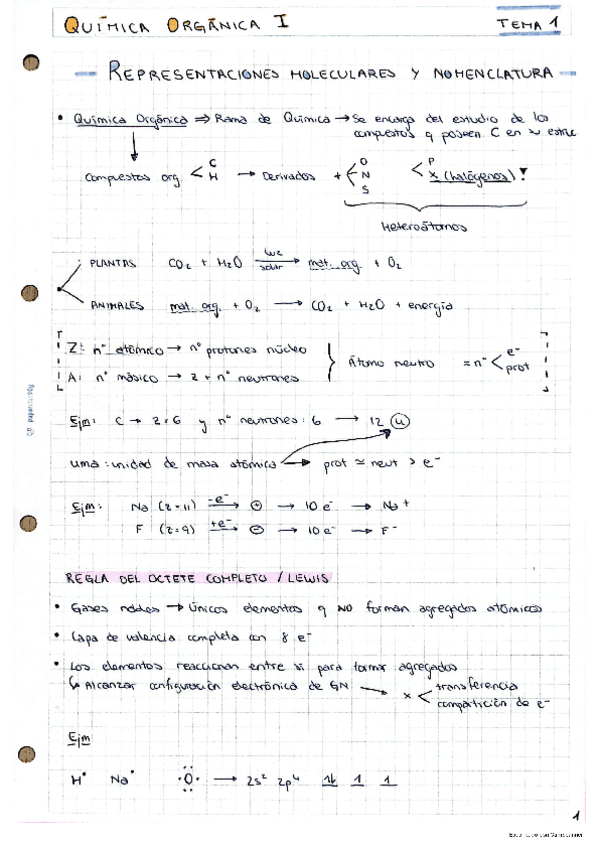 QUÍMICA ORGÁNICA I
TEMA 1
REPRESENTACIONES MOLECULARES Y NOMENCLATURA
• Química Orgánica ⇒ Rama de Química → Se encarga del estudio de los
compuestos q poseen C en su estruc
Compuestos org < C H → Derivados + < O N S < P X (halógenos)!
Heteroátomos
PLANTAS CO₂ + H₂O luz solar → mat. org. + O₂
ANIMALES mat. org. + O₂ → CO₂ + H₂O + energía
Z: nº atómico → nº protones núcleo
A: nº másico → z + nº neutrones
} Átomo neutro = nº < e⁻ prot
Ejm: C → z=6 y nº neutrones: 6 → 12 u
uma: unidad de masa atómica → prot ≃ neut > e⁻
Ejm: Na (z=11) -e⁻ → ⊕ → 10 e⁻ → Na⁺
F (z=9) +e⁻ → ⊖ → 10 e⁻ → F⁻
REGLA DEL OCTETE COMPLETO / LEWIS
• Gases nobles → Únicos elementos q NO forman agregados atómicos
• Capa de valencia completa con 8 e⁻
• Los elementos reaccionan entre sí para formar agregados
↳ Alcanzar configuración electrónica de GN → x < transferencia
compartición de e⁻
Ejm
H• Na• O → 2s² 2p⁴ 1↓ 1 1
1